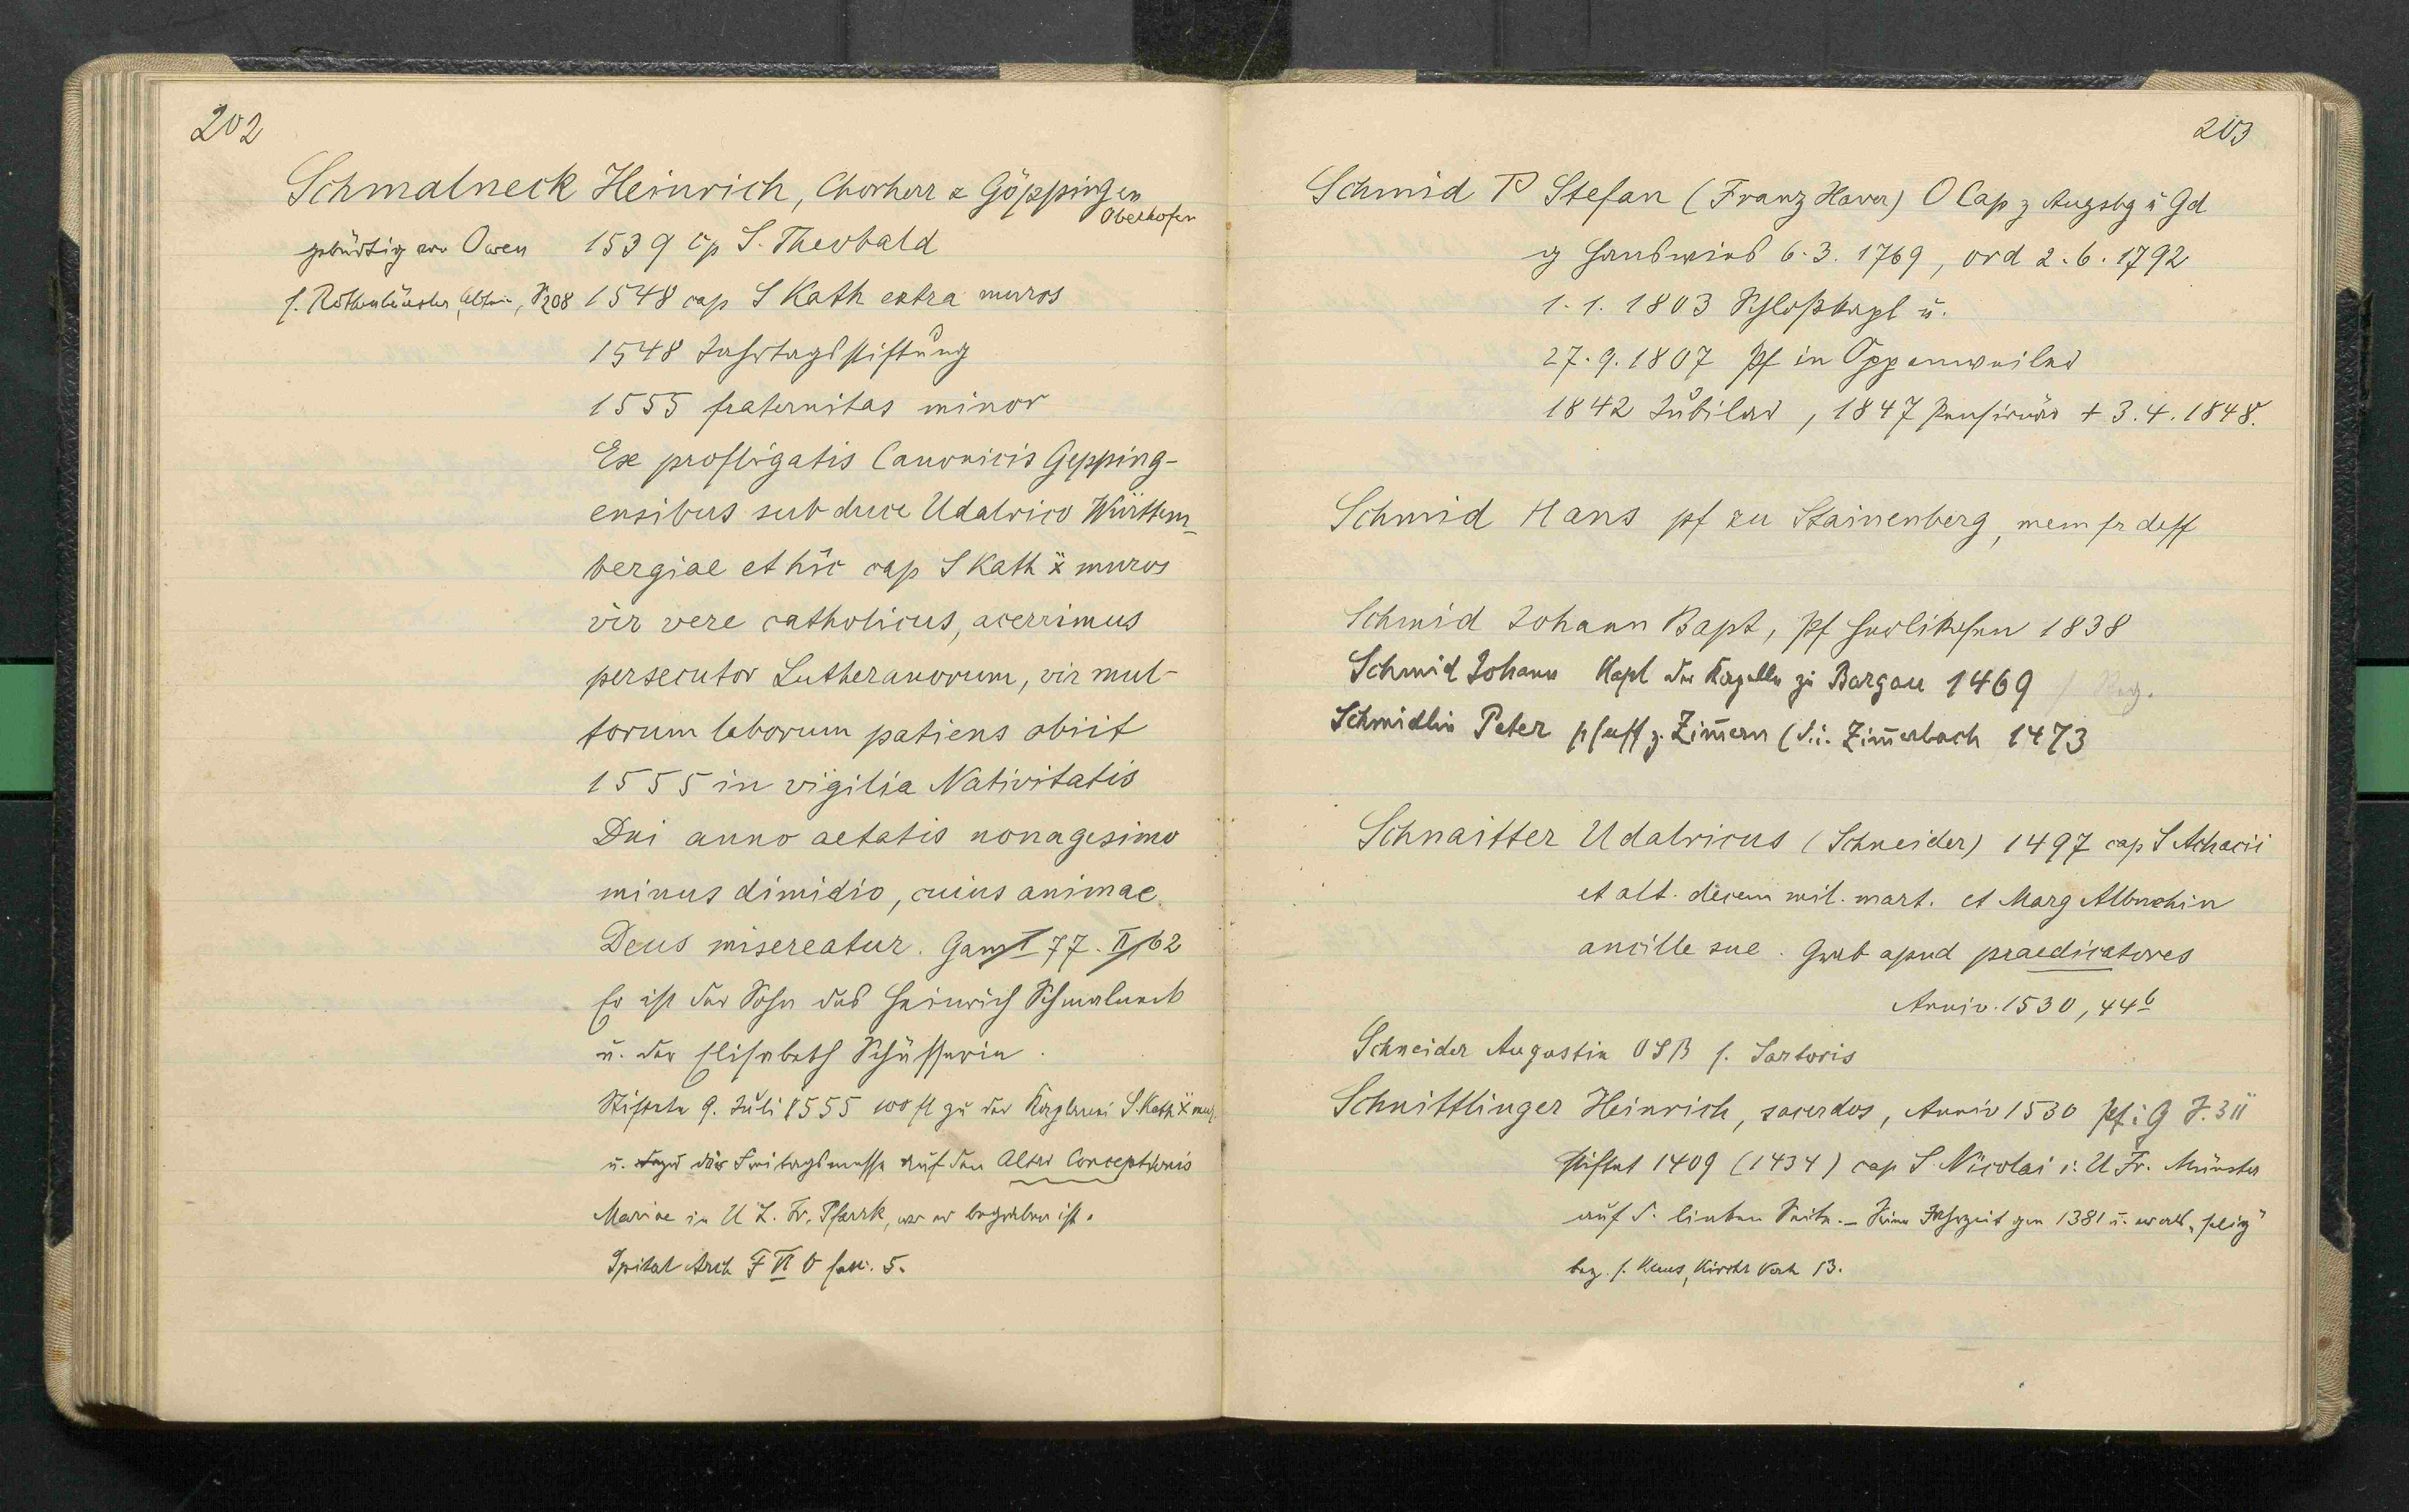 202
Schmalneck Heinrich, Chorherr z Göppingen
Oberhofen
gebürtig von Owen 1539 cp S. Theobald
s. 1548 cap S Kath extra muros
1548 Jahrtagsstiftung
1555 fraternitas minor
Ex profligatis Canonicis Gepping-
ensibus sub duce Udalrico Württem-
bergiae et hic cap S Kath x̄ muros
vir vere catholicus, acerrimus
persecutor Lutheranorum, vir mul-
torum laborum patiens obiit
1555 in vigilia Nativitatis
Dni anno aetatis nonagesimo
minus dimidio, cuius animae
Deus misereatur. Gam I 77. II 62
Er ist der Sohn des Heinrich Schmalneck
u. der Elisabeth
Stiftete 9. Juli 1555 100 fl zu der Kaplanei S. Kath x̄ mur
u. die Freitagsmesse auf den Altar Conceptionis
Mariae in U L. Fr. Pfarrk, wo er begraben ist.
Spital Arch F VI fasc. 5.
203
Schmid P Stefan (Franz Xaver) O Cap z Augsbg u Gd
g 6.3. 1769, ord 2.6. 1792
1.1. 1803 Schloßkapl u.
27.9.1807 Pf in Oppenweiler
1842 Jubilar, 1847 Pensionär + 3.4. 1848.
Schmid Hans pf zu Stainenberg, mem fr deff
Schmid Johann Bapt, Pf Herlikofen 1838
Schmid Johann Kapl der Kapelle zu Bargau 1469
Schmidlin Peter pfaff z. Zim̄ern (d.i. Zim̄erbach 1473
Schnaitter Udalricus (Schneider) 1497 cap S Achacii
et alt. decem mil. mart. et Marg Albuchin
ancille sue. Grab apud praedicatores
Anniv. 1530, 44b
Schneider Augustin OSB s. Sartoris
Schnittlinger Heinrich, sacerdos, Anniv 1530 Pf i G
stiftet 1409 (1434) cap S. Nicolai i. U Fr. Münster
auf d. linken Seite. – Seine Jahrzeit 1381 u. „selig"
bez. s. Kirchh 13.